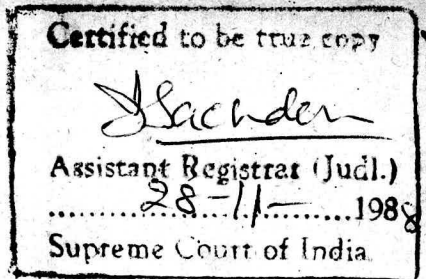 Certified to be true copy
Assistant Registrar (Judl.)
........28-11-..........1988
Supreme Court of India